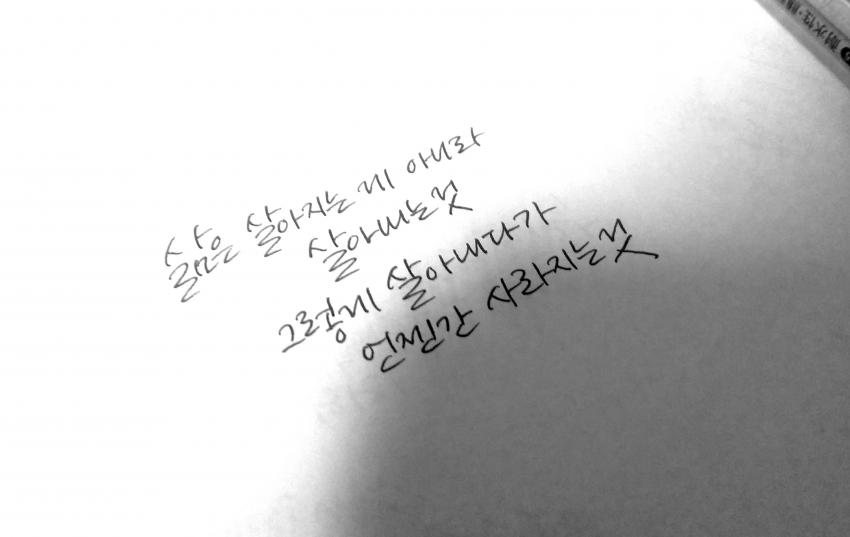 삶은 살아지는 게 아니라
살아내는것
그렇게 살아내다가
언젠간 사라지는것
耐水性